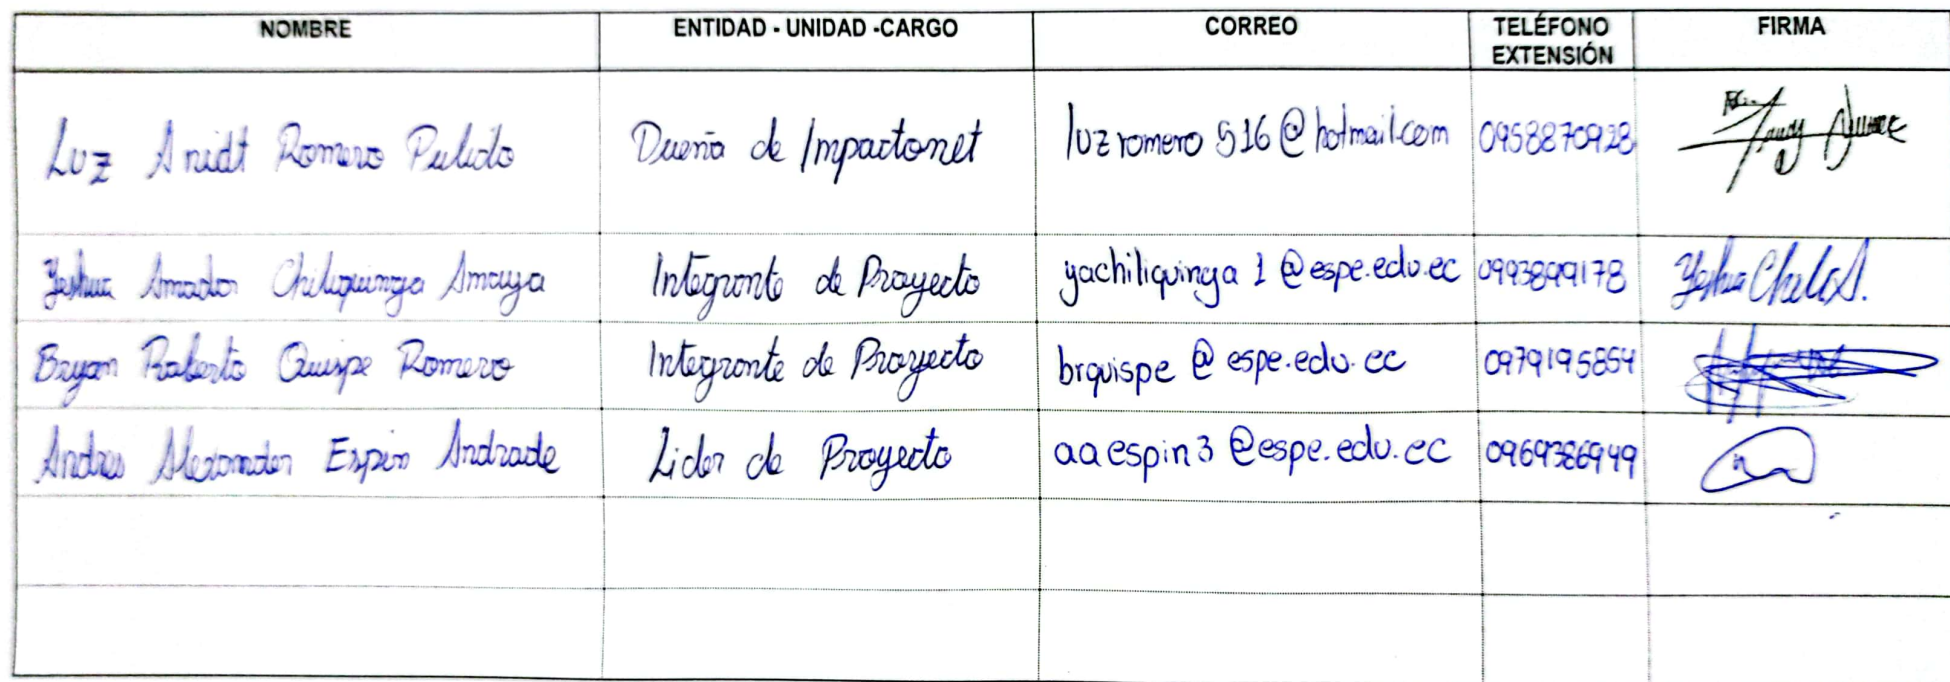 NOMBRE ENTIDAD - UNIDAD -CARGO CORREO TELÉFONO EXTENSIÓN FIRMA
Luz Anidt Romero Pulido Dueña de Impactonet luzromero516@hotmail.com 0958870928
Yeshua Amador Chiliquinga Amaya Integrante de Proyecto yachiliquinga1@espe.edu.ec 0993899178
Bryan Roberto Quispe Romero Integrante de Proyecto brquispe@espe.edu.ec 0979195854
Andres Alexander Espin Andrade Lider de Proyecto aaespin3@espe.edu.ec 0969386949